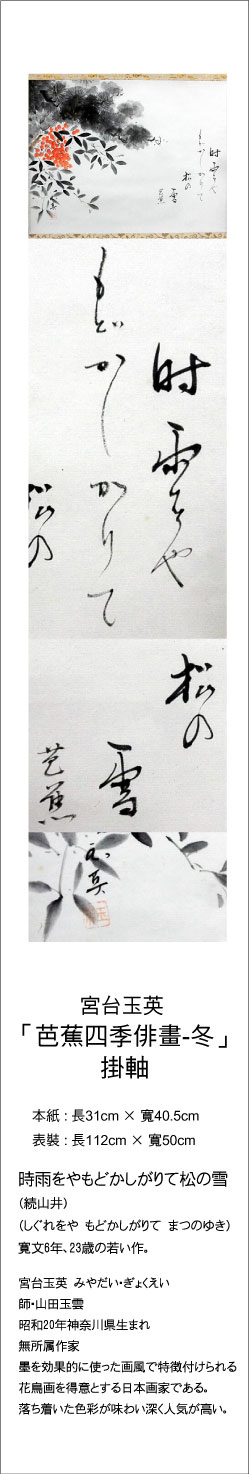 时雨をや
もどかしかりて
松の
雪
芭蕉
时雨をや
もどかしかりて
松の
松の
雪
芭蕉
玉英
宮台玉英
「芭蕉四季俳畫-冬」
掛軸
本紙：長31cm × 寬40.5cm
表裝：長112cm × 寬50cm
時雨をやもどかしがりて松の雪
（続山井）
（しぐれをや もどかしがりて まつのゆき）
寛文6年、23歳の若い作。
宮台玉英 みやだい・ぎょくえい
師・山田玉雲
昭和20年神奈川県生まれ
無所属作家
墨を効果的に使った画風で特徴付けられる
花鳥画を得意とする日本画家である。
落ち着いた色彩が味わい深く人気が高い。